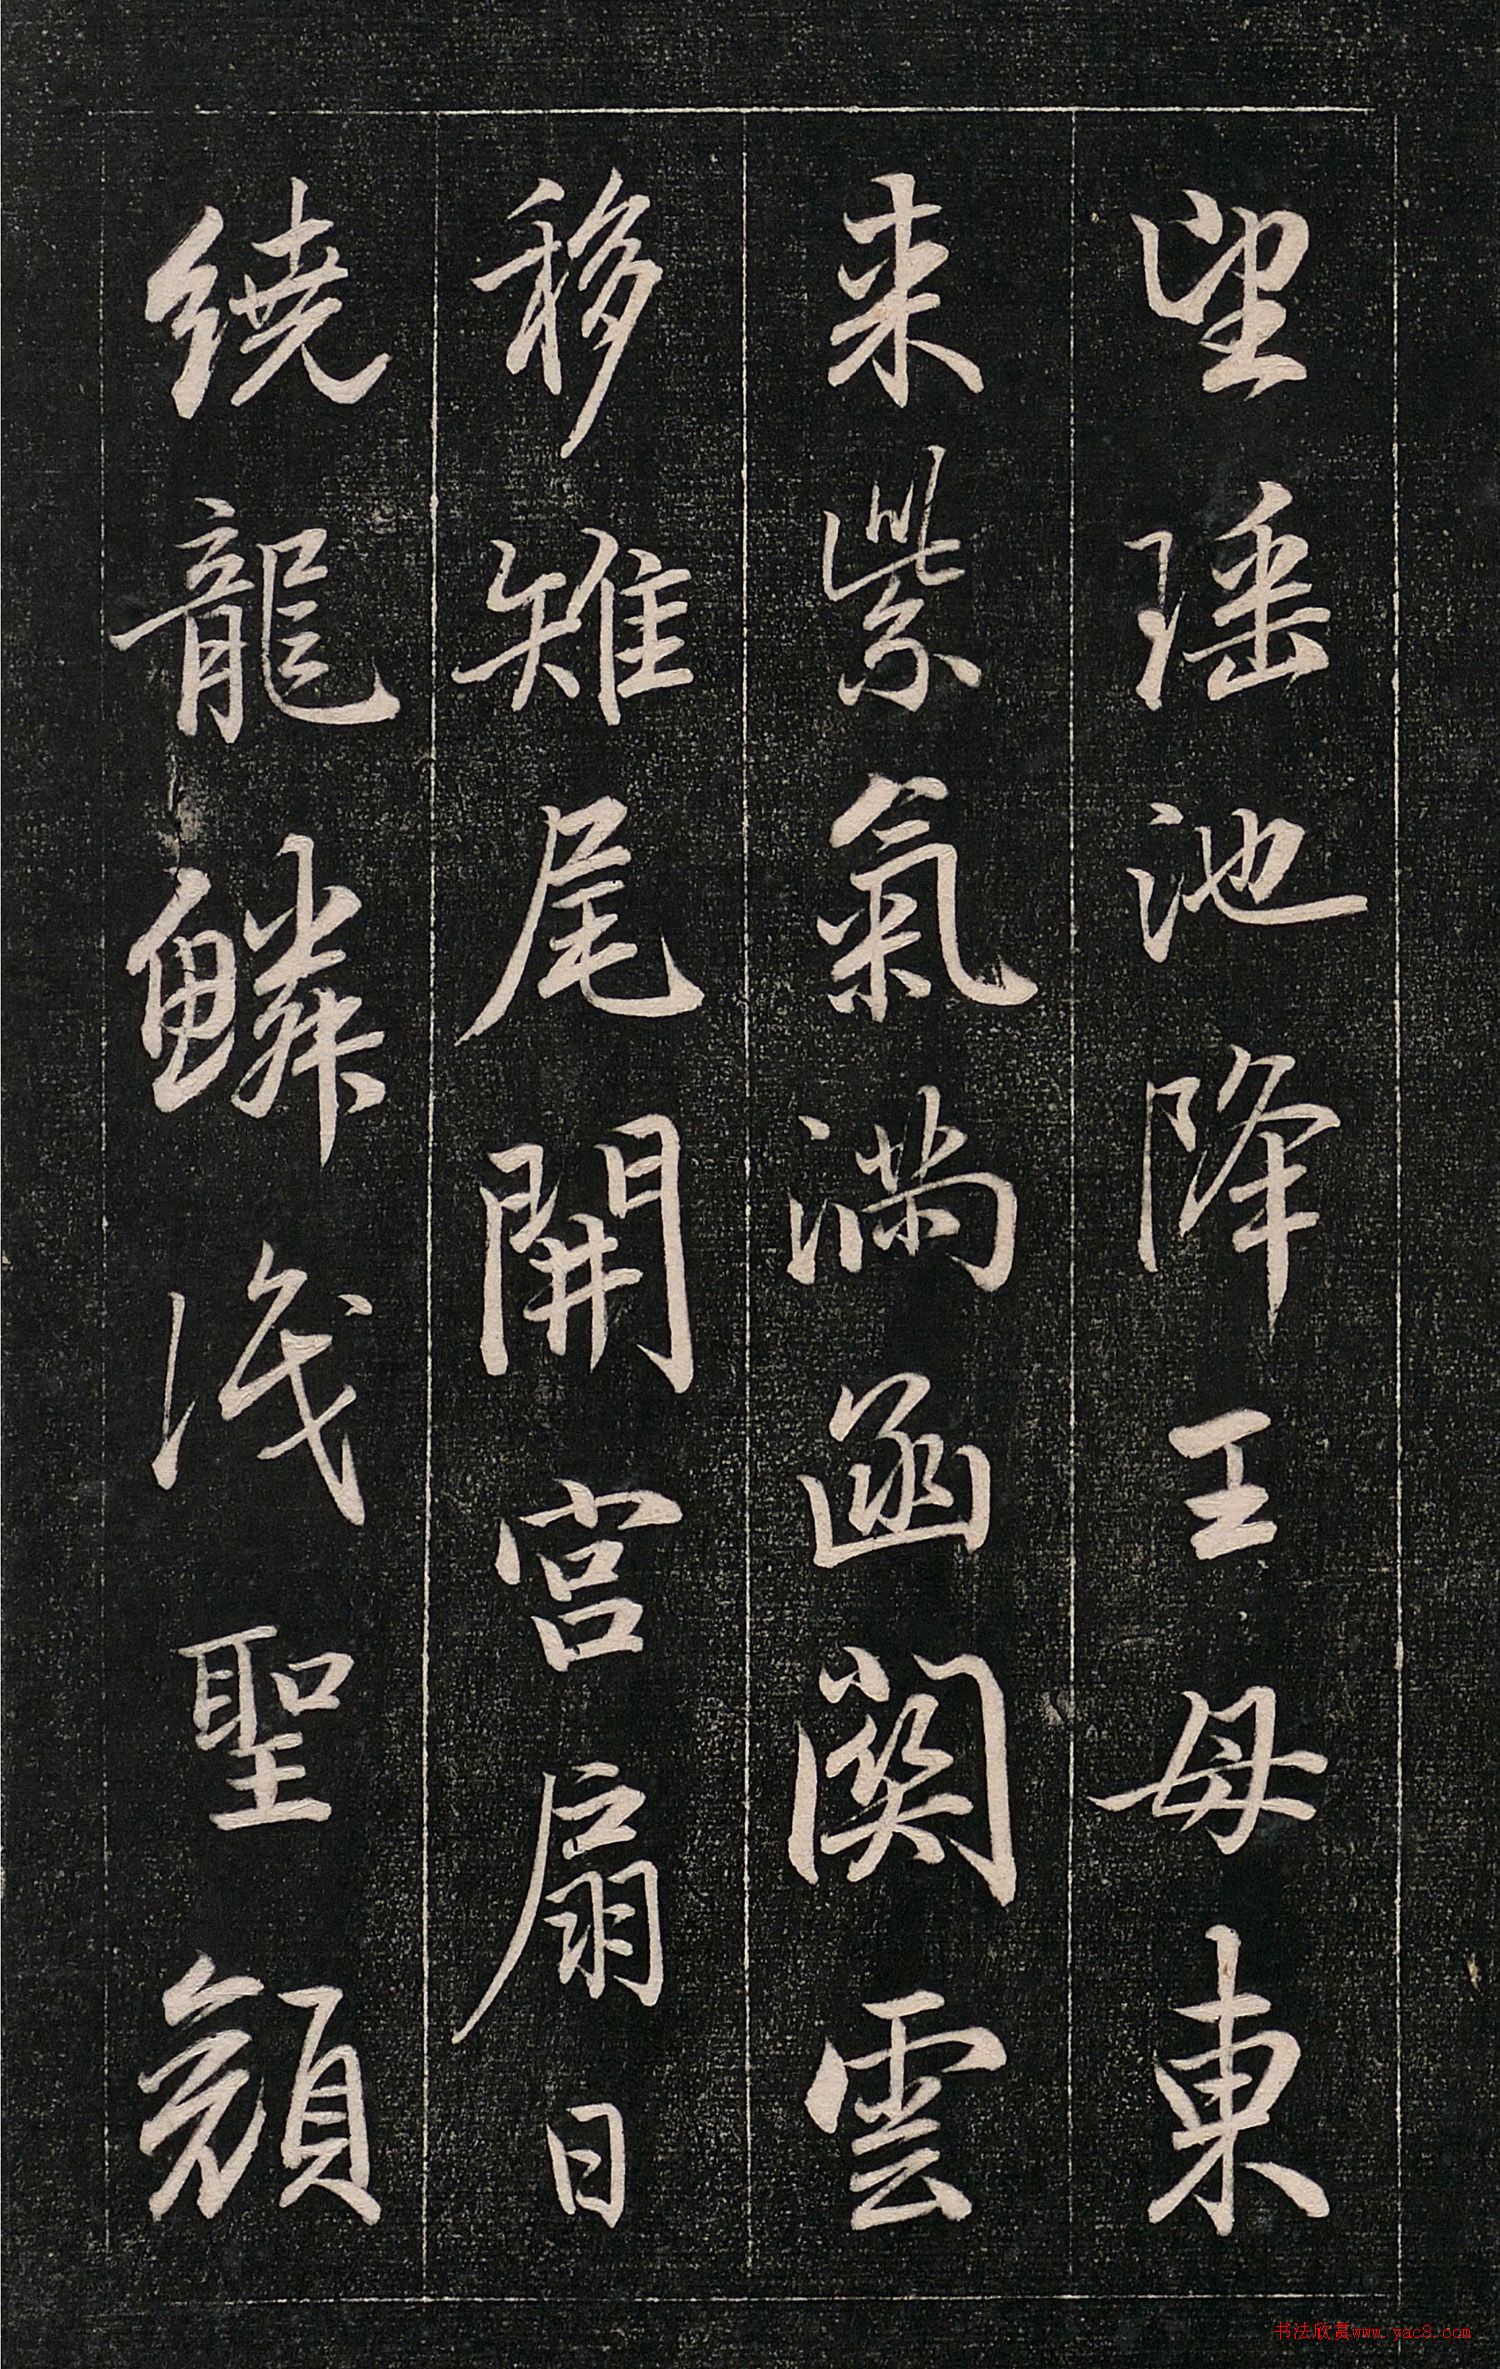 望瑤池降王母東
来紫氣滿函關雲
移雉尾開宮扇日
繞龍鱗識聖顏
书法欣赏www.yac8.com